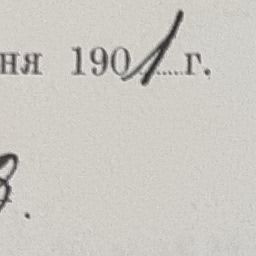 ня 1901 г.